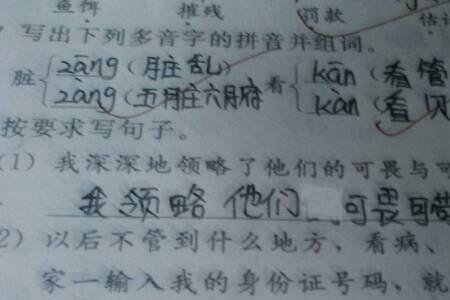 鱼饵 摧残 罚款 估
写出下列多音字的拼音并组词。
脏 zāng (月庄乱) 看 kān (看管
zàng (五月庄六月府 kàn (看见
按要求写句子。
(1) 我深深地领略了他们的可畏与可
我领略他们 可畏可
2) 以后不管到什么地方、看病、
家一输入我的身份证号码，就